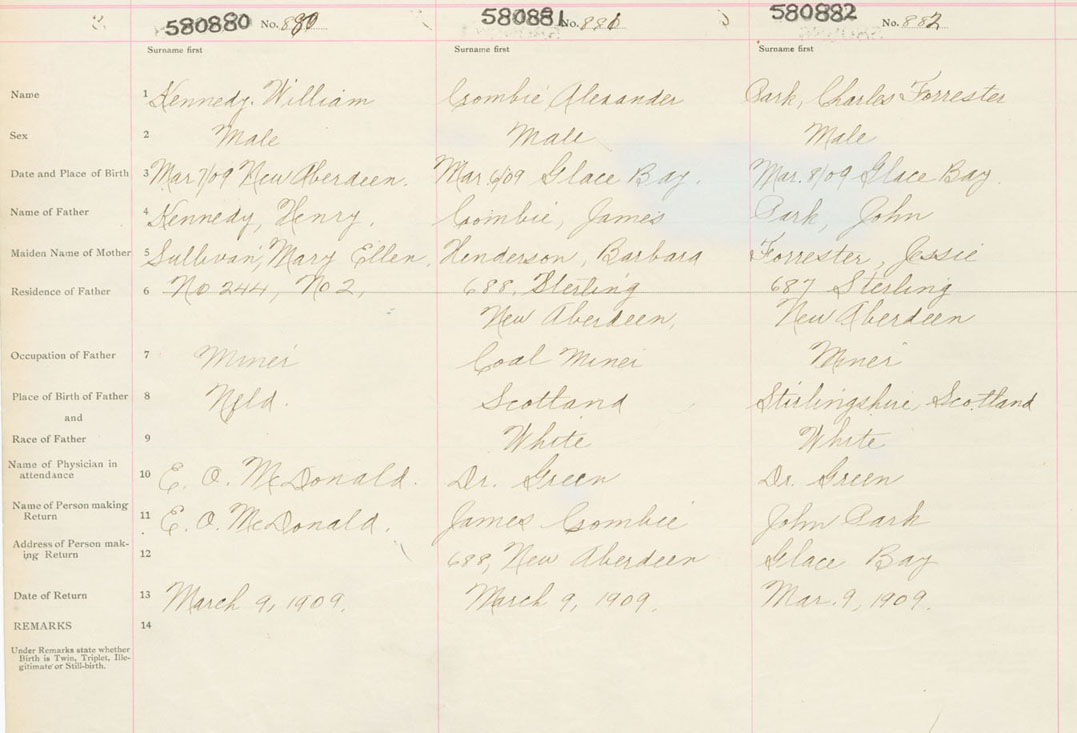 580880 No. 880 580881 No. 881 580882 No. 882
Surname first Surname first Surname first
Name 1 Kennedy. William Crombie Alexander Park, Charles Forrester
Sex 2 Male Male Male
Date and Place of Birth 3 Mar 7/09 New Aberdeen. Mar. 6/09 Glace Bay. Mar. 8/09 Glace Bay.
Name of Father 4 Kennedy, Henry. Crombie, James Park, John
Maiden Name of Mother 5 Sullivan, Mary Ellen. Henderson, Barbara Forrester, Jessie
Residence of Father 6 No 244, No 2, 688, Sterling 687 Sterling
New Aberdeen, New Aberdeen
Occupation of Father 7 Miner Coal Miner Miner
Place of Birth of Father 8 Nfld. Scotland Stirlingshire, Scotland
and
Race of Father 9 White White
Name of Physician in
attendance 10 E. O. McDonald. Dr. Green Dr. Green
Name of Person making
Return 11 E. O. McDonald. James Crombie John Park
Address of Person mak-
ing Return 12 688, New Aberdeen Glace Bay
Date of Return 13 March 9, 1909. March 9, 1909. Mar. 9, 1909.
REMARKS 14
Under Remarks state whether
Birth is Twin, Triplet, Ille-
gitimate or Still-birth.